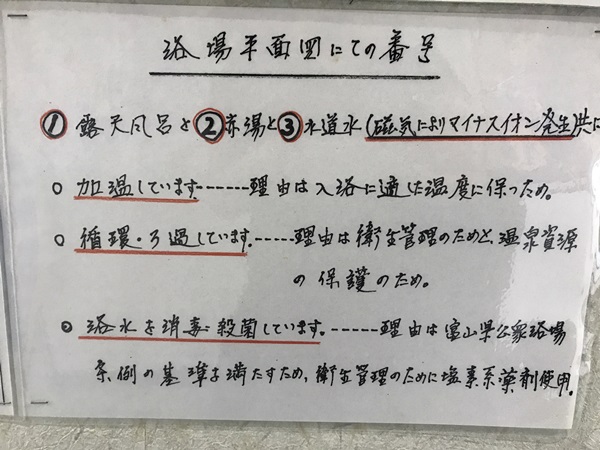 浴場平面図にての番号
① 露天風呂と②赤湯と③水道水(磁気によりマイナスイオン発生)共に
○ 加温しています------理由は入浴に適した温度に保つため。
○ 循環・ろ過しています。-----理由は衛生管理のためと、温泉資源
の保護のため。
○ 浴水を消毒・殺菌しています。------理由は富山県公衆浴場
条例の基準を満たすため、衛生管理のために塩素系薬剤使用。